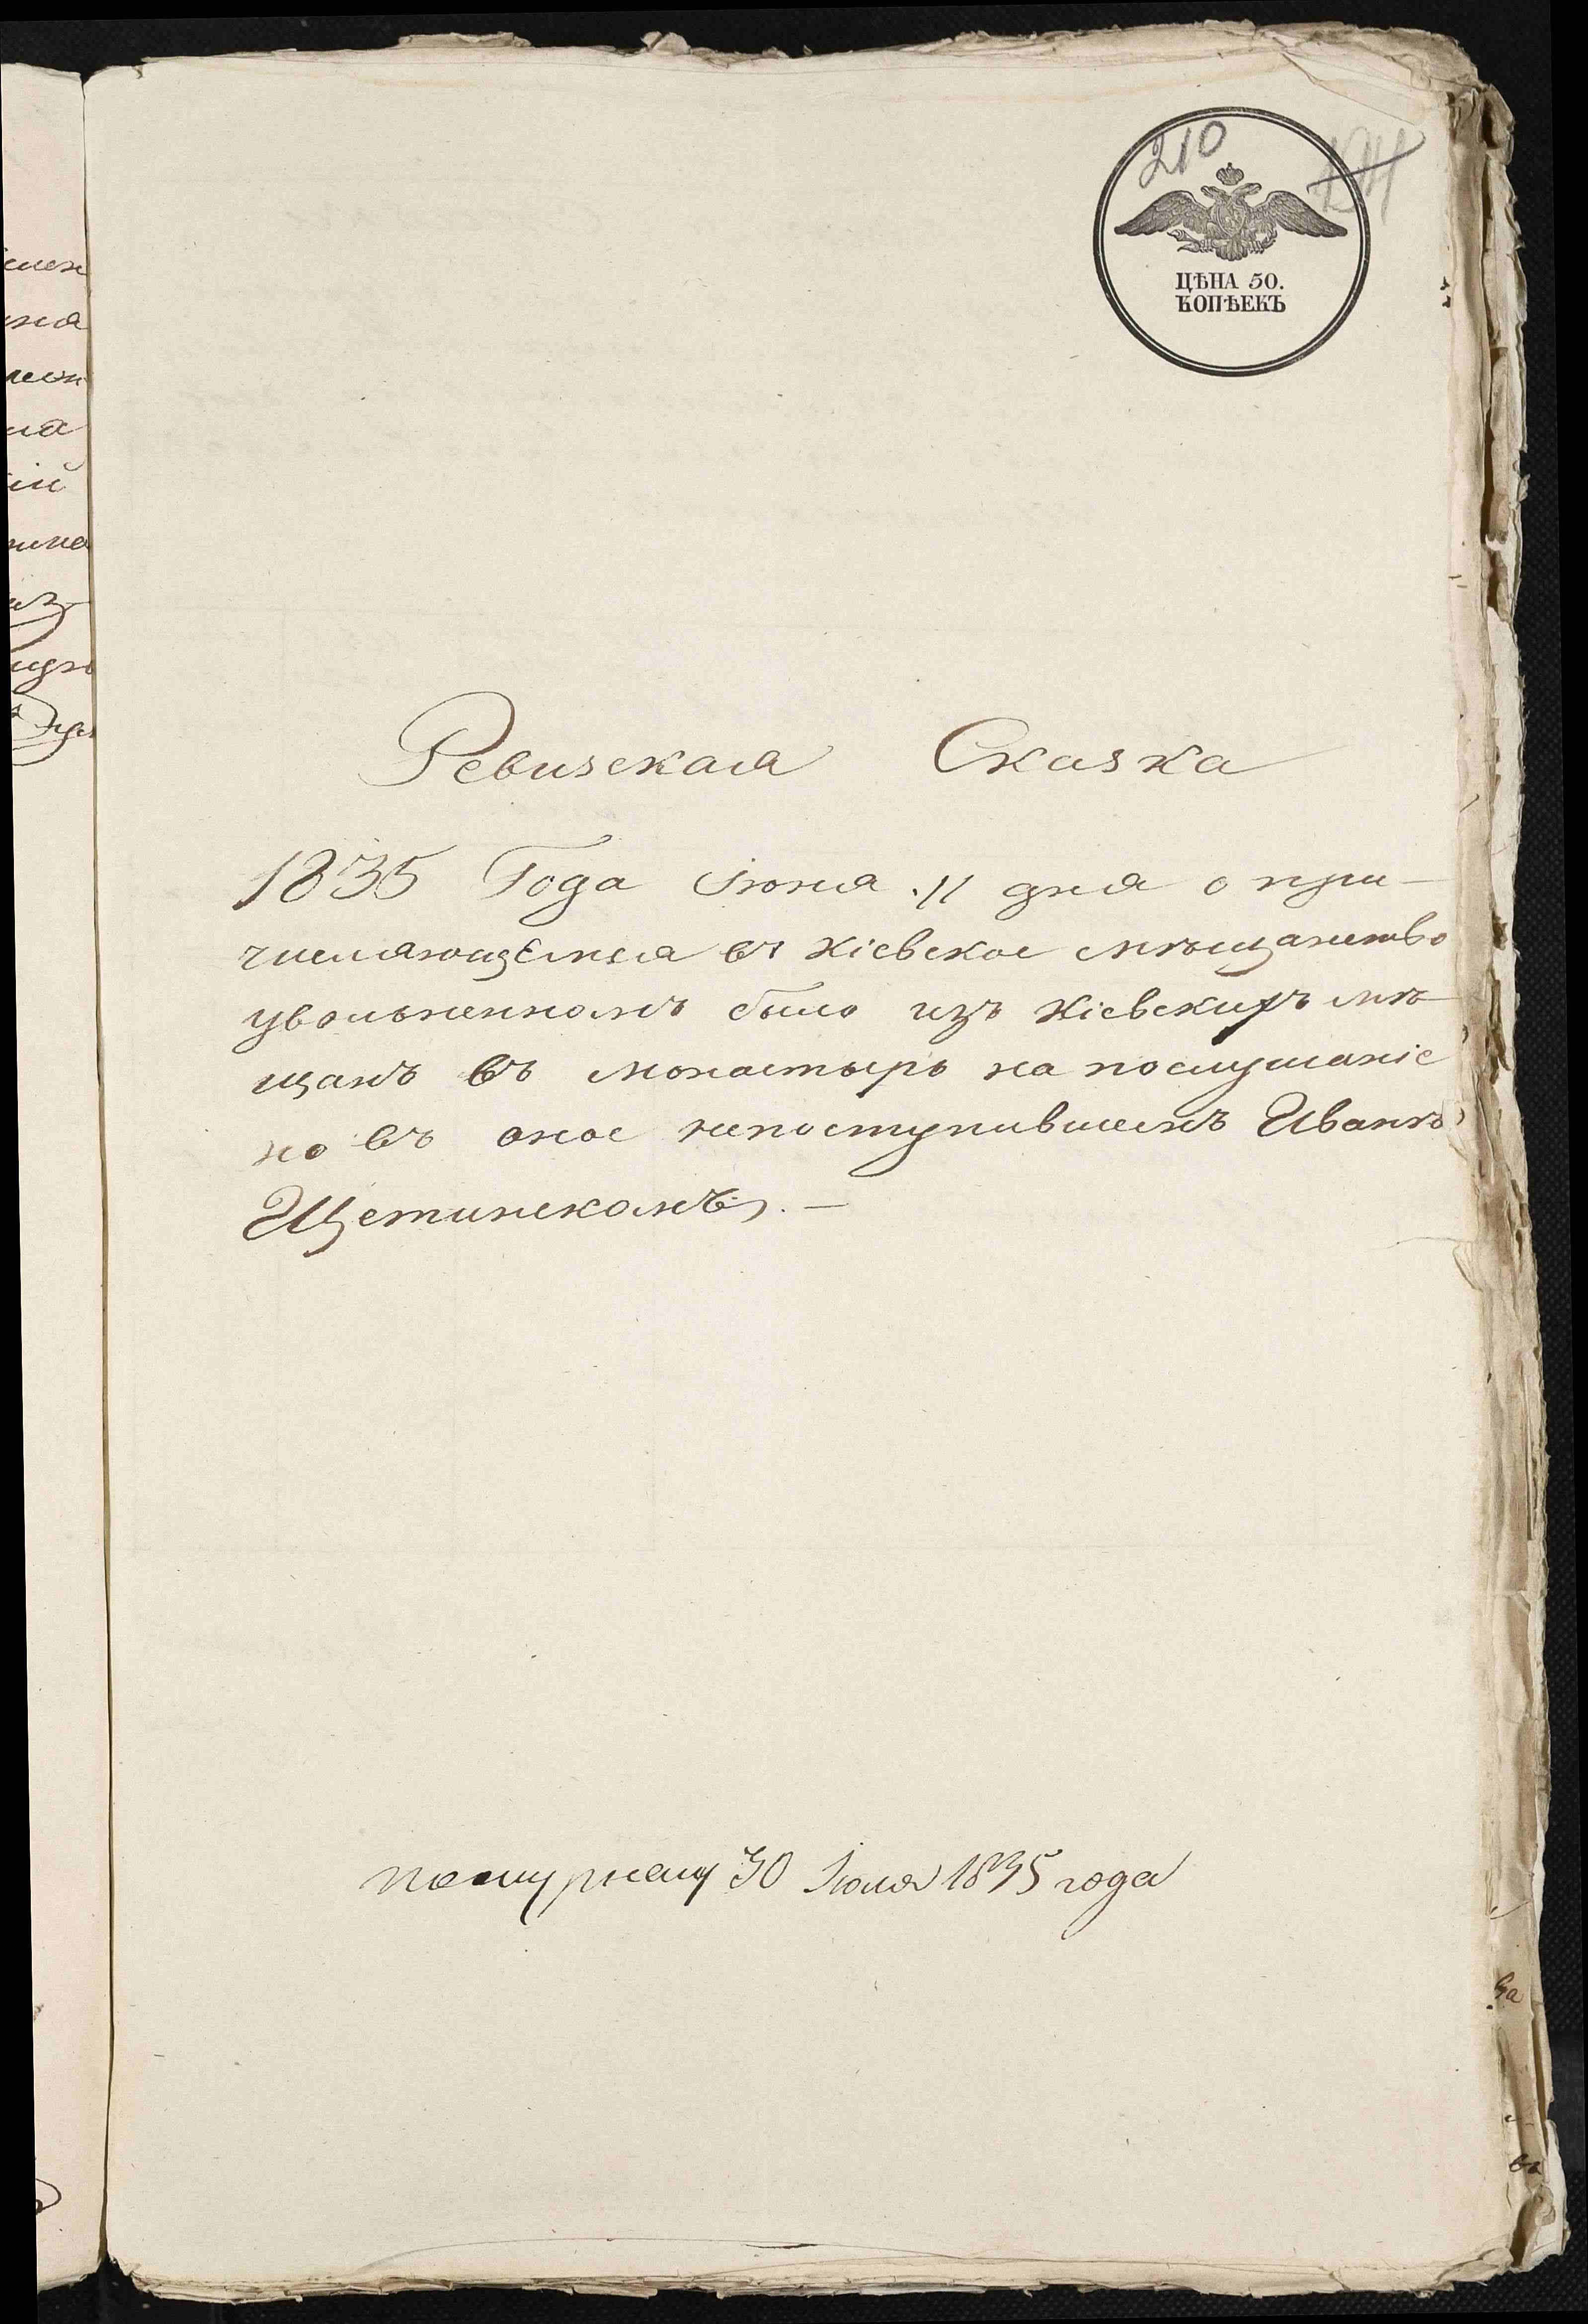 210
ЦѢНА 50.
КОПѢЕКЪ
Ревизская Сказка
1835 Года Іюня 11 дня о при-
числяющемся въ Кіевское мѣщанство
увольненномъ было изъ Кіевскихъ мѣ-
щанъ въ монастырь на послушаніе
но въ оное непоступившемъ Иванѣ
Щетинскомъ. —
30 Іюля 1835 года